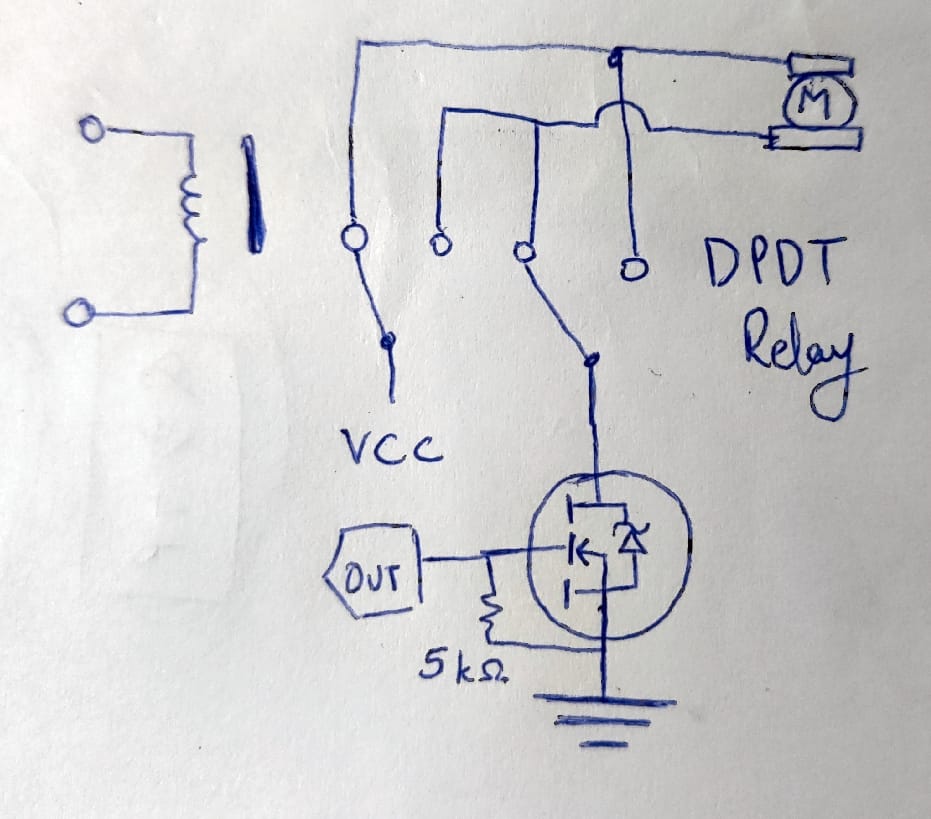 M
DPDT
Relay
VCC
OUT
5kΩ